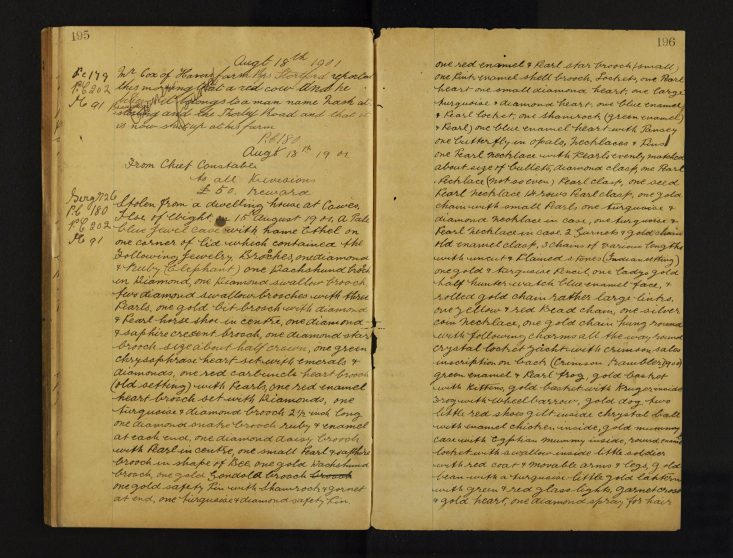 195
Augt 18th 1901
Pc 179
P.C 202
Mr Cox of Hams farm Nrs Stortford reported
this morning that a red cow and he
belongs to a man name Nash at
and the Road and that it
is now shut up at his farm
P.C 180
Augt 18th 1901
From Chief Constable
to all Divisions
£50. Reward
P.C 180
P.C 202
91
Stolen from a dwelling house at Cowes
Isle of Wight, 15th August 1901, A Pale
blue jewel case with name Ethel on
one corner of lid which contained the
following jewelry, Broches, one diamond
& Ruby (Elephant) one Dachshund broch
in Diamond, one Diamond swallow brooch,
two diamond swallow brooches with three
Pearls, one gold bit broch with diamond
& Pearl horse shoe in centre, one diamond
& saphire cresent brooch, one diamond star
brooch size about half crown, one green
chrysopphrase heart set with emerals &
diamonds, one red carbuncle heart brooch
(old setting) with Pearls, one red enamel
heart brooch set with Diamonds, one
turquoise & diamond brooch 2½ inch long
one diamond snake brooch ruby & enamel
at each end, one diamond daisy brooch
with Pearl in centre, one small Pearl & saphire
brooch in shape of Bee, one gold Dachshund
brooch, one gold Gondola brooch brooch
one gold safety Pin with Shamrock & garnet
at end, one turquoise & diamond safety Pin
196
one red enamel & Pearl star brooch (small)
one Pink enamel shell brooch, Lockets, one Pearl
heart one small diamond heart, one large
turquoise & diamond heart, one blue enamel
& Pearl locket, one shamrock (green enamel
& Pearl) one blue enamel heart with Pansey
one butterfly in opals, Necklaces & Pins
one Pearl Necklace with Pearls evenly matched
about size of bullets, diamond clasp, one Pearl
Necklace (not so even) Pearl clasp, one seed
Pearl Necklace 4 rows Pearl clasp, one gold
chain with small Pearl, one turquoise &
diamond Necklace in case, one turquoise &
Pearl Necklace in case 2 Garnets & gold chain
old enamel clasp, 3 chains of various lengths
with uncut & Plained stones (Indian setting)
one gold & turquoise Pencil, one Ladys gold
half hunter watch blue enamel face, &
rolled gold chain rather large links,
one yellow & red Bead chain, one silver
coin Necklace, one gold chain hung round
with following charms all the way round
crystal locket yacht with crimson sales
inscription on back (Crimson Rambler) 1900)
green enamel & Pearl frog, gold basket
with Kittens, gold basket with Kruger inside
frog with wheel barrow, gold dog, two
little red shoes gilt inside chrystal ball
with enamel chicken inside, gold mummy
case with Egyptian mummy inside, round enamel
locket with swallow inside little soldier
with red coat & movable arms & legs, gold
bean with a turquoise little gold lantern
with green & red glass lights, garnet cross
& gold heart, one diamond spray for hair